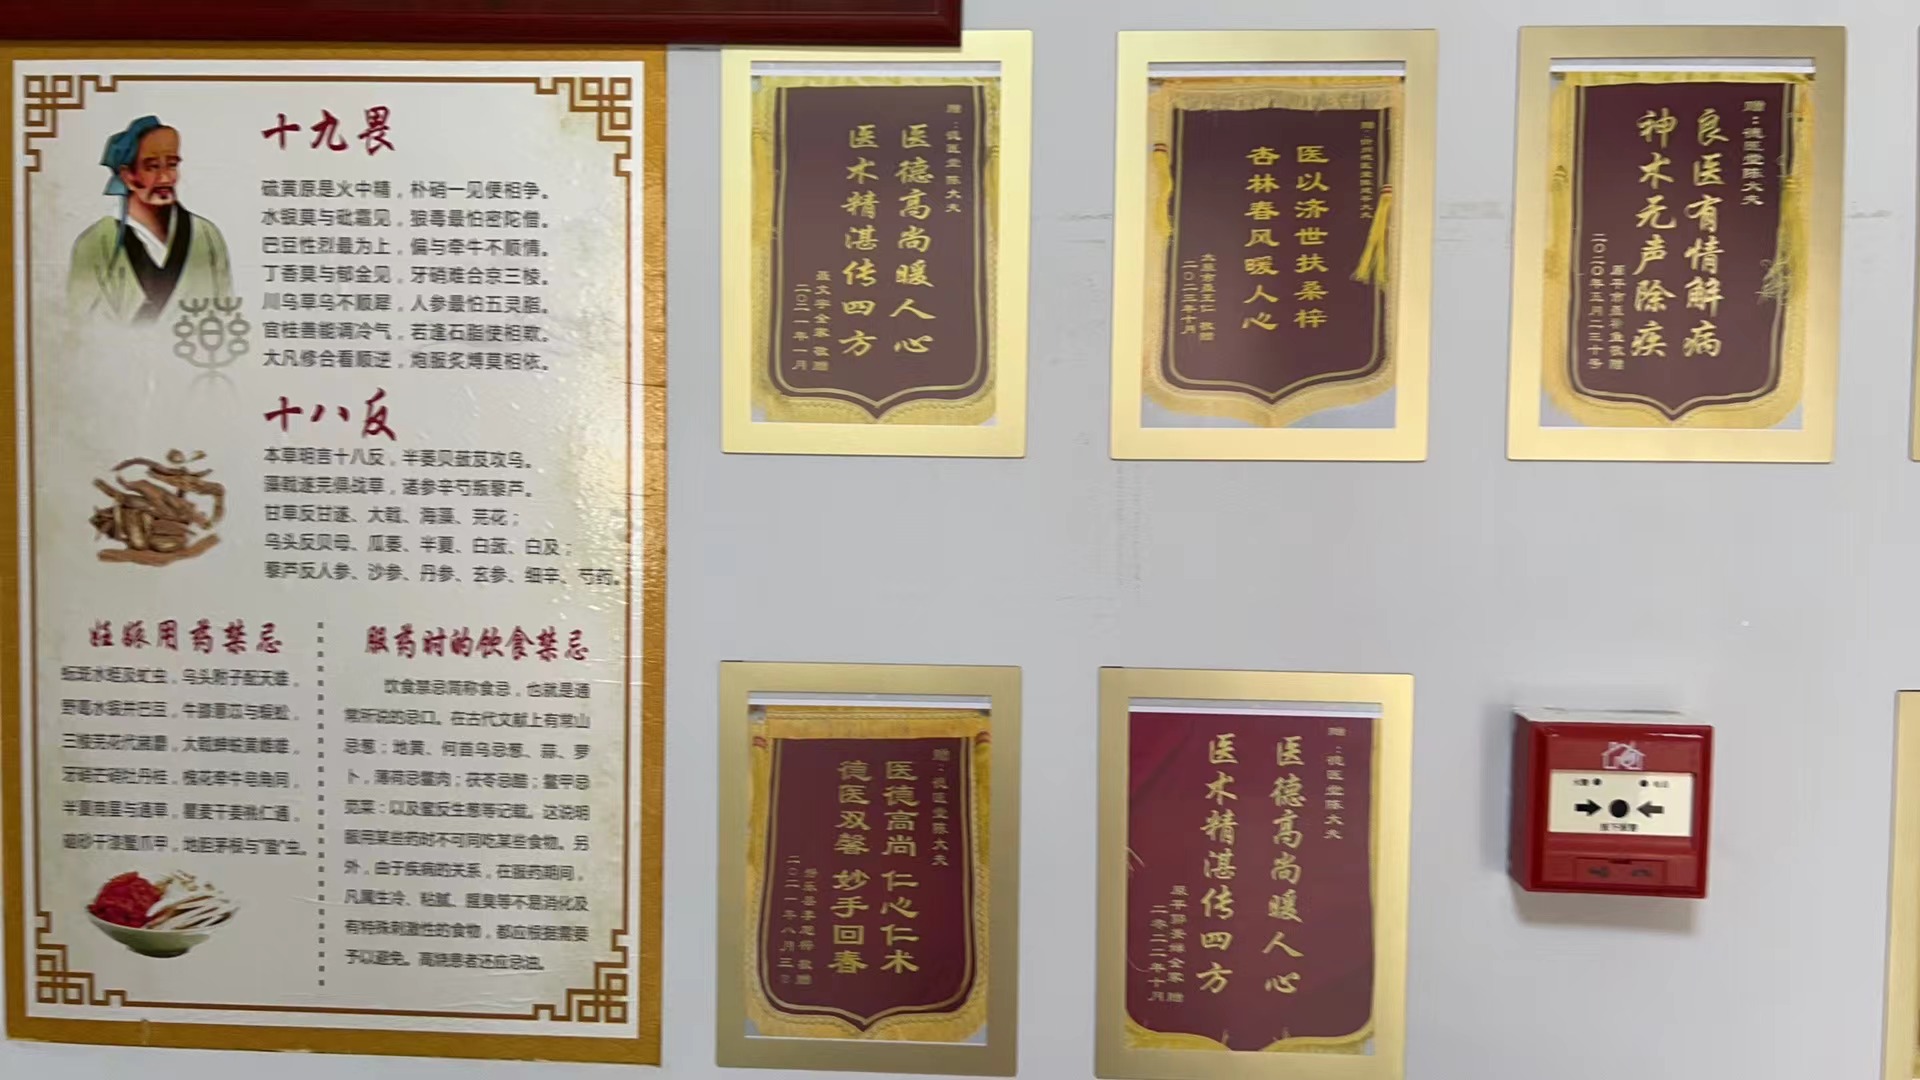 十九畏
硫黄原是火中精，朴硝一见便相争。
水银莫与砒霜见，狼毒最怕密陀僧。
巴豆性烈最为上，偏与牵牛不顺情。
丁香莫与郁金见，牙硝难合京三棱。
川乌草乌不顺犀，人参最怕五灵脂。
官桂善能调冷气，若逢石脂便相欺。
大凡修合看顺逆，炮服炙煿莫相依。
十八反
本草明言十八反，半蒌贝蔹芨攻乌。
藻戟遂芫俱战草，诸参辛芍叛藜芦。
甘草反甘遂、大戟、海藻、芫花；
乌头反贝母、瓜蒌、半夏、白蔹、白及；
藜芦反人参、沙参、丹参、玄参、细辛、芍药。
妊娠用药禁忌
乌头附子配天雄，
野葛水银并巴豆，牛膝薏苡与蜈蚣，
牙硝芒硝牡丹桂，槐花牵牛皂角同，
半夏南星与通草，瞿麦干姜桃仁通，
硇砂干漆蟹爪甲，地胆茅根与"䗪"虫。
服药时的饮食禁忌
饮食禁忌简称食忌，也就是通
常所说的忌口。在古代文献上有常山
忌葱；地黄、何首乌忌葱、蒜、萝
卜，薄荷忌鳖肉；茯苓忌醋；鳖甲忌
苋菜：以及蜜反生葱等记载。这说明
服用某些药时不可同吃某些食物。另
外，由于疾病的关系，在服药期间，
凡属生冷、粘腻、腥臭等不易消化及
有特殊刺激性的食物，都应根据需要
予以避免。高烧患者还应忌油。
赠：德医堂陈大夫
医德高尚暖人心
医术精湛传四方
聂文宇全家 敬赠
二〇二一年一月
医以济世扶桑梓
杏林春风暖人心
二〇二三年十月
赠：德医堂陈大夫
良医有情解病
神术无声除疾
赠：德医堂陈大夫
医德高尚 仁心仁术
德医双馨 妙手回春
赠：德医堂陈大夫
医德高尚暖人心
医术精湛传四方
二零二二年十月
按下报警